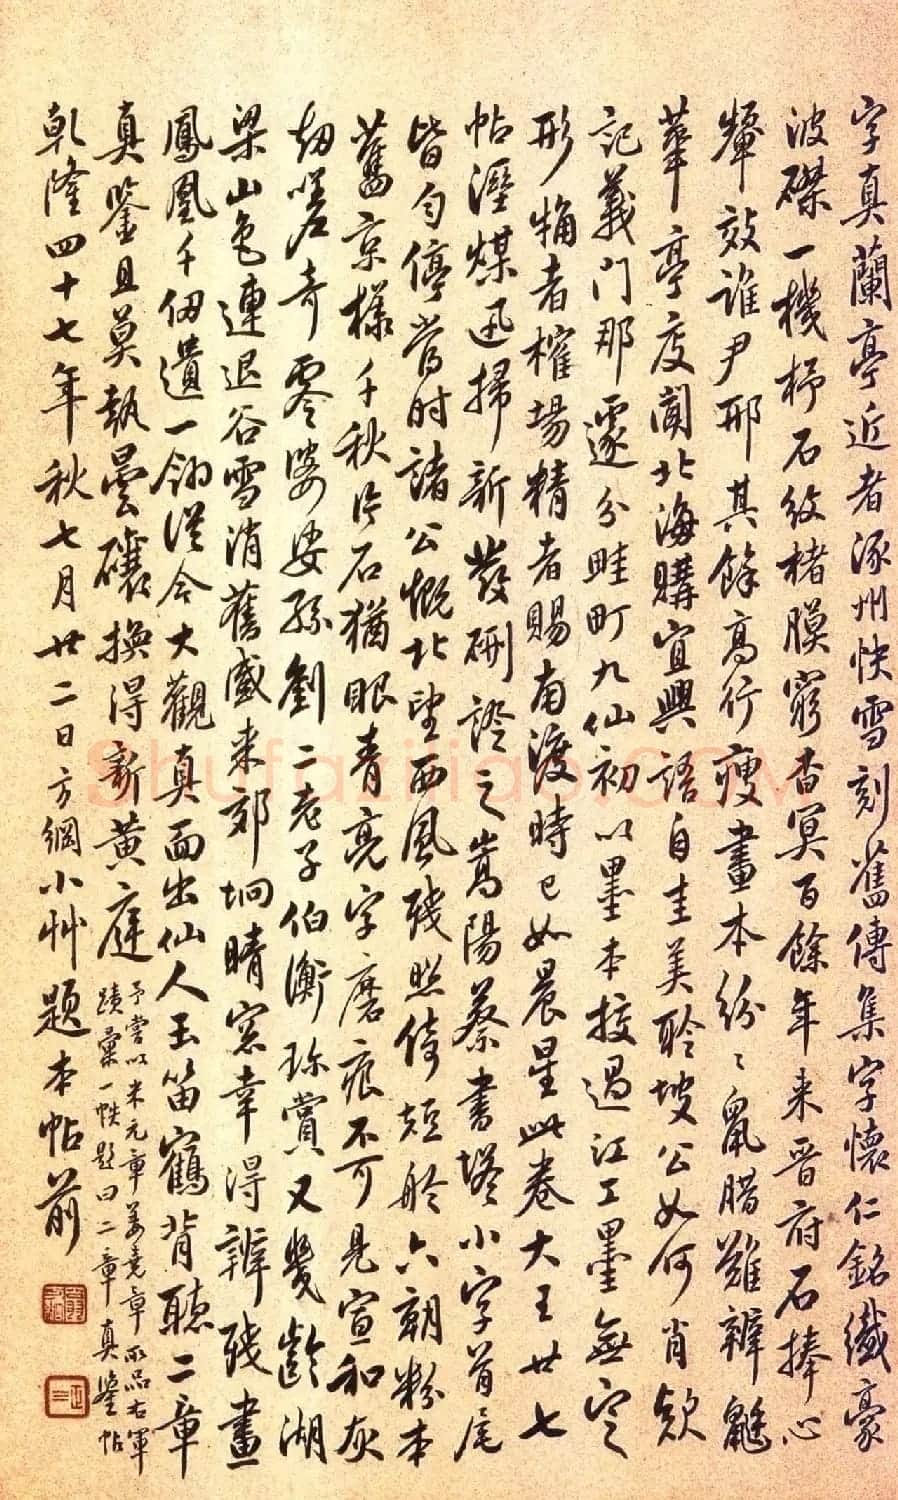 字真蘭亭近者涿州快雪刻舊傳集字懷仁銘纖豪
波磔一機杼石紋楮膜窮杳冥百餘年來晋府石捧心
顰效誰尹邢其餘高行瘦畫本紛〻鼠腊難辨
華亭度閣北海購宜興語自圭美聆坡公如何肖欵
記義門那遽分畦町九仙初以墨本接過江工墨無定
形觕者榷場精者賜南渡時已如晨星此卷大王廿七
帖溼煤迅掃新發硎證之嵩陽蔡書塔小字首尾
皆勻停當时諸公慨北望西風殘照倚短舲六朝粉本
舊京様千秋片石猶眼青亮字磨痕不可見宣和灰
劫嗟奇零婆娑孫劉二老子伯衡珎賞又幾齡湖
梁山色連退谷雪消舊盛来郊坰晴窓幸得辨殘畫
鳳凰千仞遺一翎從今大觀真面出仙人玉笛鶴背聽二章
真鑒且莫執曇礦換得新黃庭
予嘗以米元章姜堯章所品右軍
蹟彙一帙題曰二章真鑒帖
乾隆四十七年秋七月廿二日方綱小艸題本帖前
Shufaziliao.COM